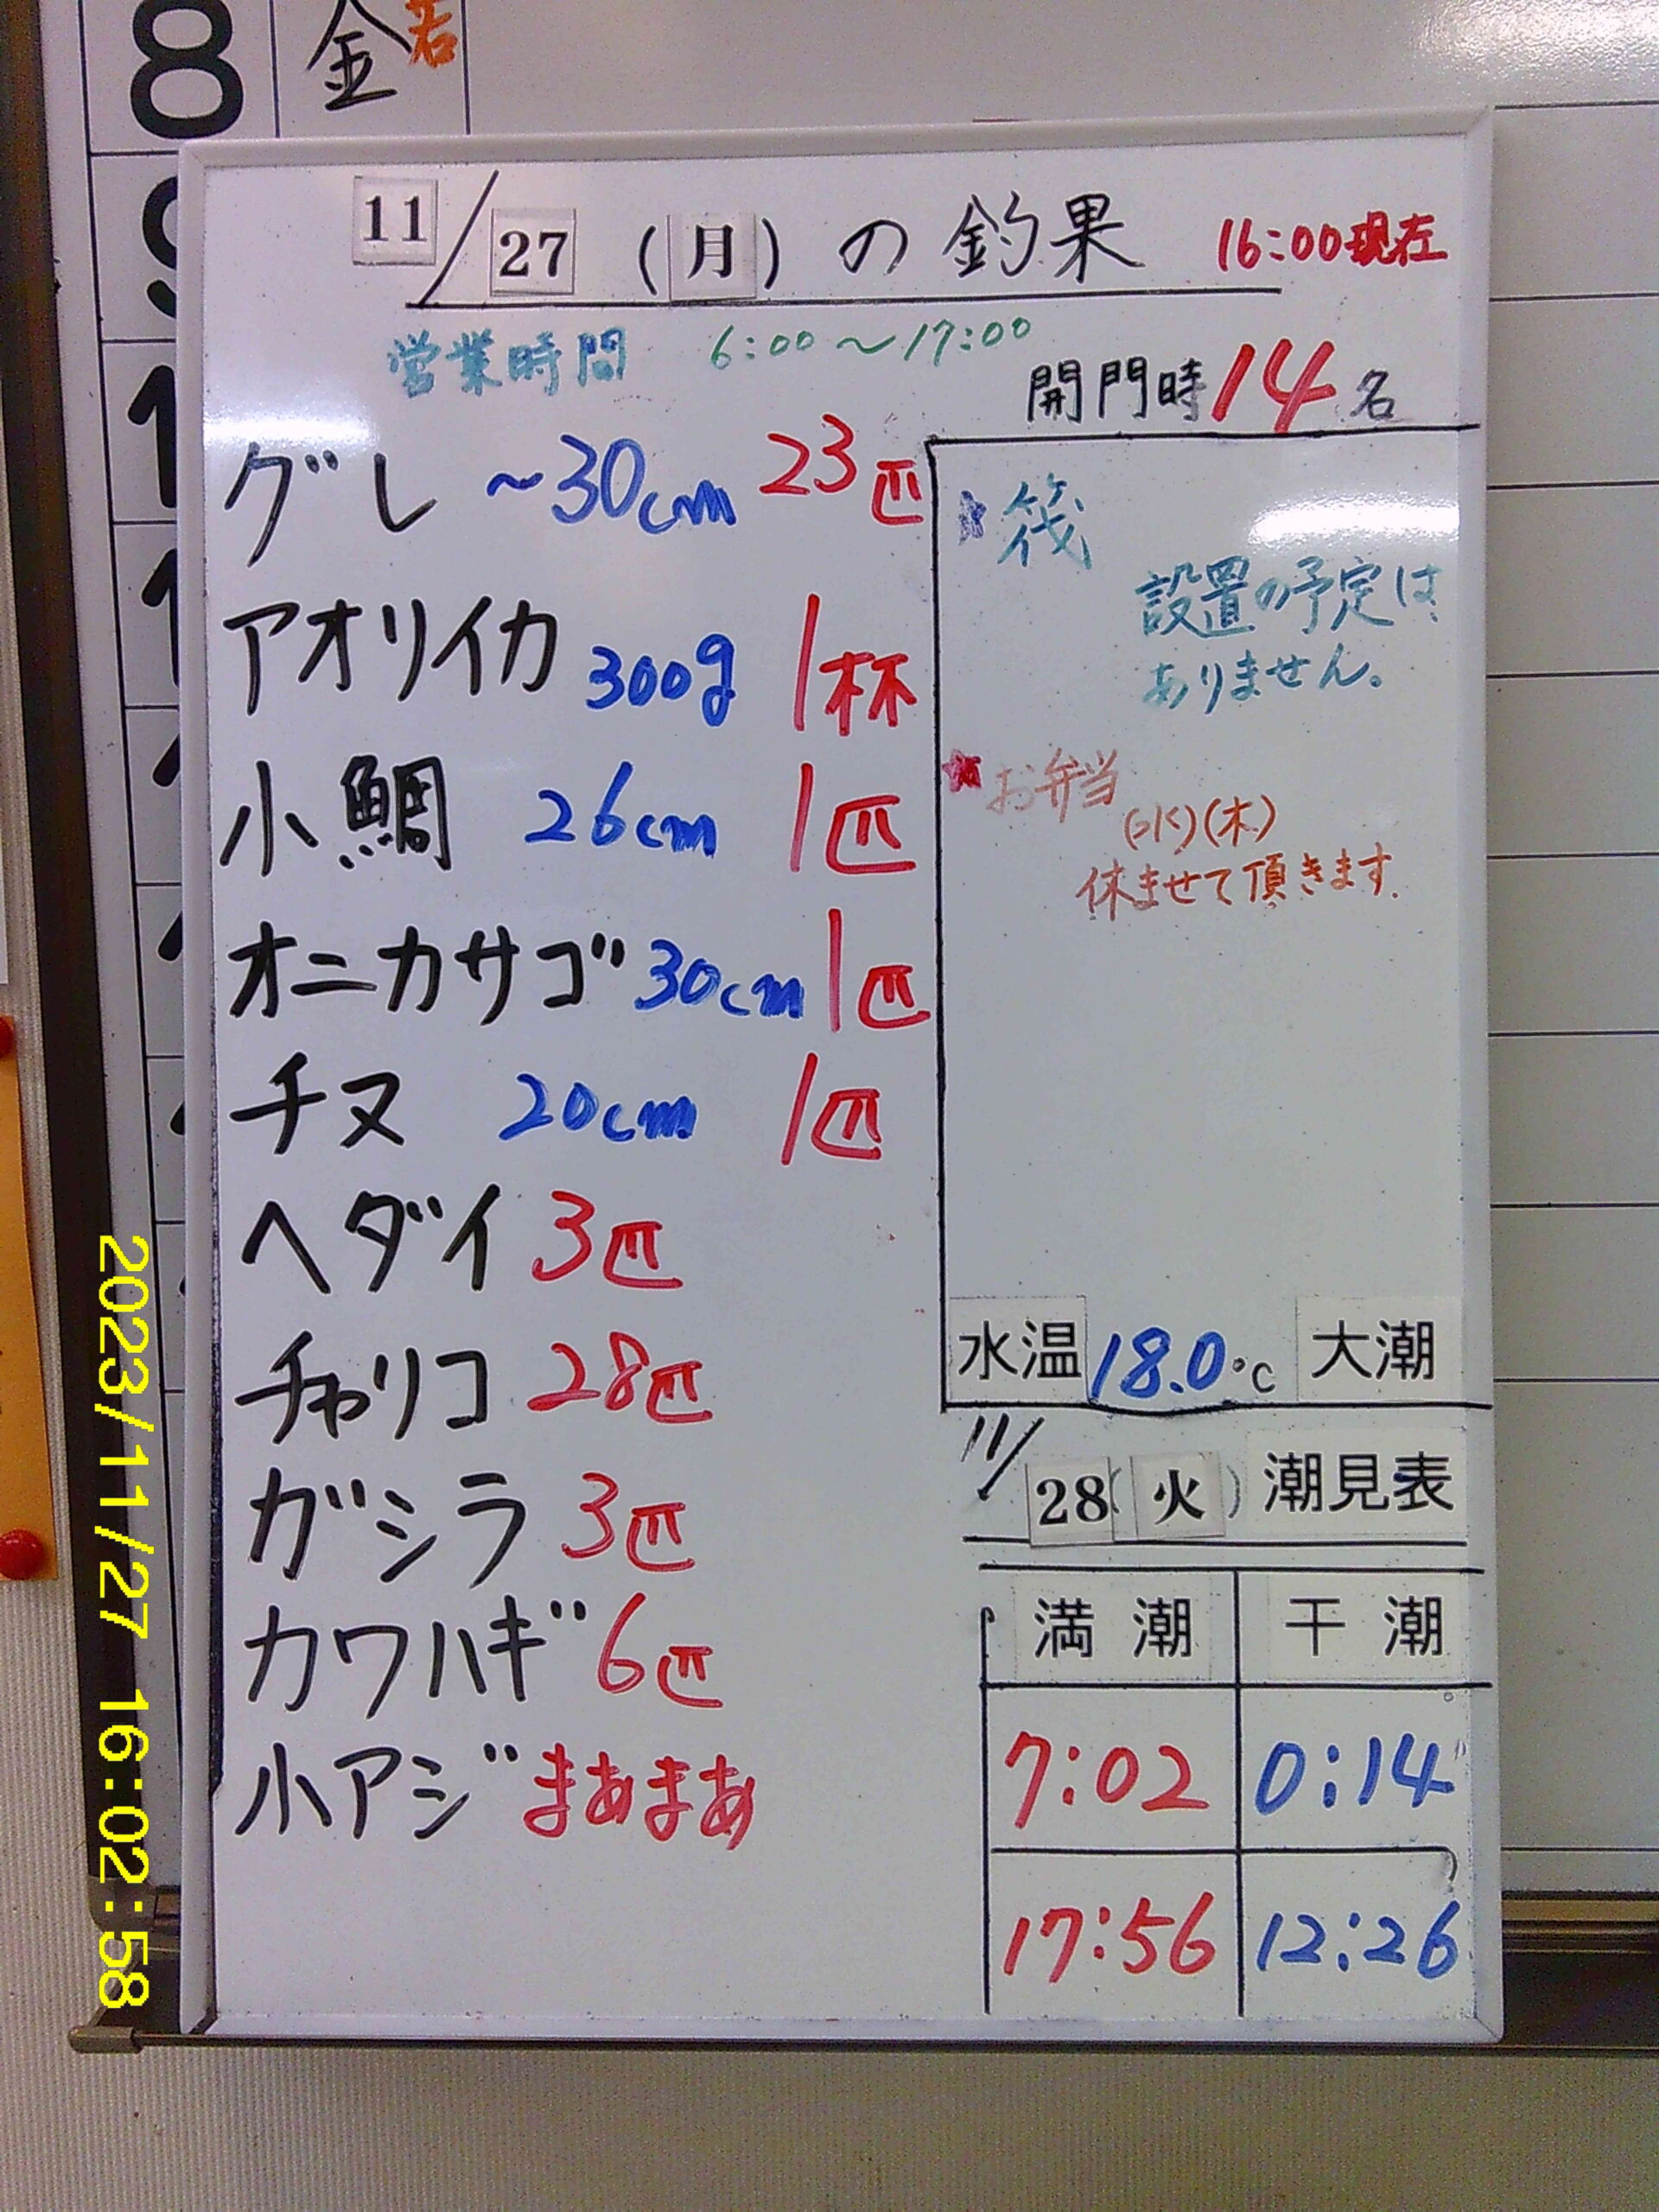 8 金 若
11/27 (月) の釣果 16:00現在
営業時間 6:00～17:00
開門時 14名
グレ ~30cm 23匹
アオリイカ 300g 1杯
小鯛 26cm 1匹
オニカサゴ 30cm 1匹
チヌ 20cm 1匹
ヘダイ 3匹
チャリコ 28匹
ガシラ 3匹
カワハギ 6匹
小アジ まあまあ
★筏
設置の予定は
ありません。
★お弁当
(水)(木)
休ませて頂きます.
水温 18.0℃ 大潮
11/28(火) 潮見表
満潮 干潮
7:02 0:14
17:56 12:26
2023/11/27 16:02:58